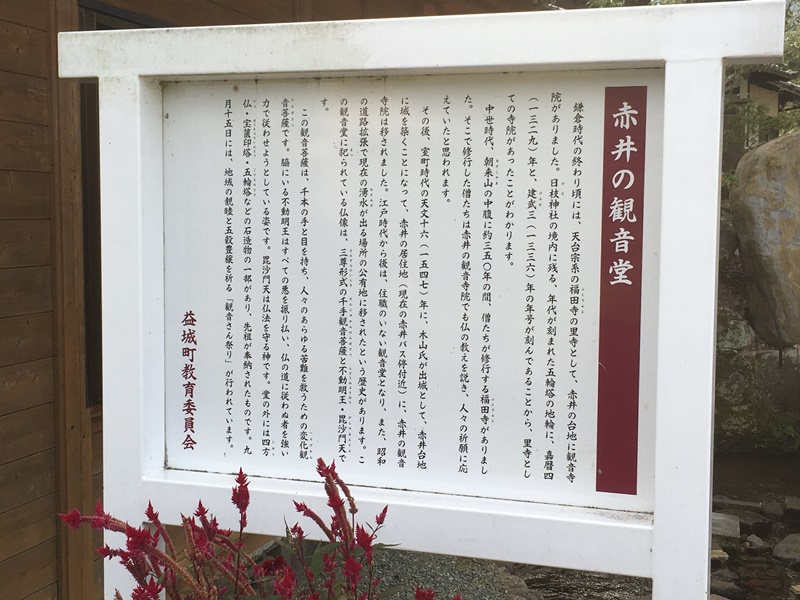 赤井の観音堂
鎌倉時代の終わり頃には、天台宗系の福田寺の里寺として、赤井の台地に観音寺
院がありました。日枝神社の境内に残る、年代が刻まれた五輪塔の地輪に、嘉暦四
（一三二九）年と、建武三（一三三六）年の年号が刻んであることから、里寺とし
ての寺院があったことがわかります。
中世時代、朝来山の中腹に約三五〇年の間、僧たちが修行する福田寺がありまし
た。そこで修行した僧たちは赤井の観音寺院でも仏の教えを説き、人々の祈願に応
えていたと思われます。
その後、室町時代の天文十六（一五四七）年に、木山氏が出城として、赤井台地
に城を築くことになって、赤井の居住地（現在の赤井バス停付近）に、赤井の観音
寺院は移されました。江戸時代から後は、住職のいない観音堂となり、また、昭和
の道路拡張で現在の湧水が出る場所の公有地に移されたという歴史があります。こ
の観音堂に祀られている仏像は、三尊形式の千手観音菩薩と不動明王・毘沙門天で
す。
この観音菩薩は、千本の手と目を持ち、人々のあらゆる苦難を救うための変化観
音菩薩です。脇にいる不動明王はすべての悪を振り払い、仏の道に従わぬ者を強い
力で従わせようとしている姿です。毘沙門天は仏法を守る神です。堂の外には四方
仏・宝篋印塔・五輪塔などの石造物の一部があり、先祖が奉納されたものです。九
月十五日には、地域の親睦と五穀豊穣を祈る「観音さん祭り」が行われています。
益城町教育委員会